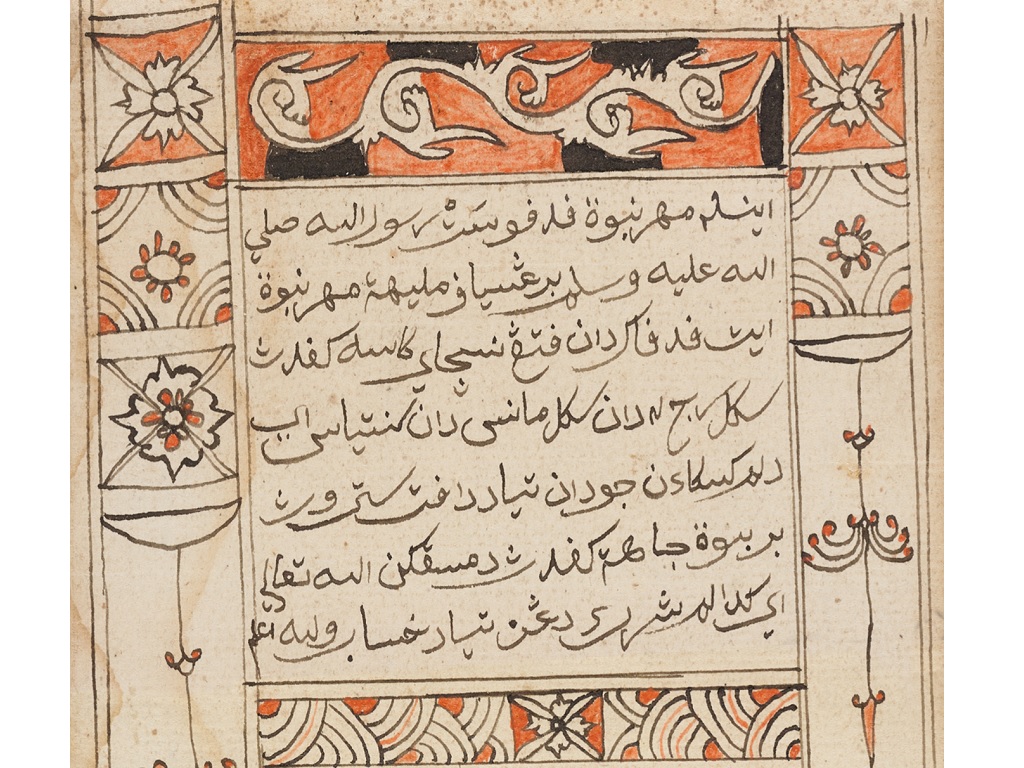 اينله مهر نبوة فد فوست رسول الله صلي
الله عليه وسلم برغسياف مليهة مهر نبوة
ايت فد فاكي دان فتڠ نسچاي كاسه كفدث
سكل راج٢ دان سكل مانسي دان سنتياس اي
دلم كسكاءن جو دان تياد دافت ستروث
بربوة جاهة كفدث دمسقكن الله تعالي
اي كدالم شرك دڠن تياد خساب والله اعلم